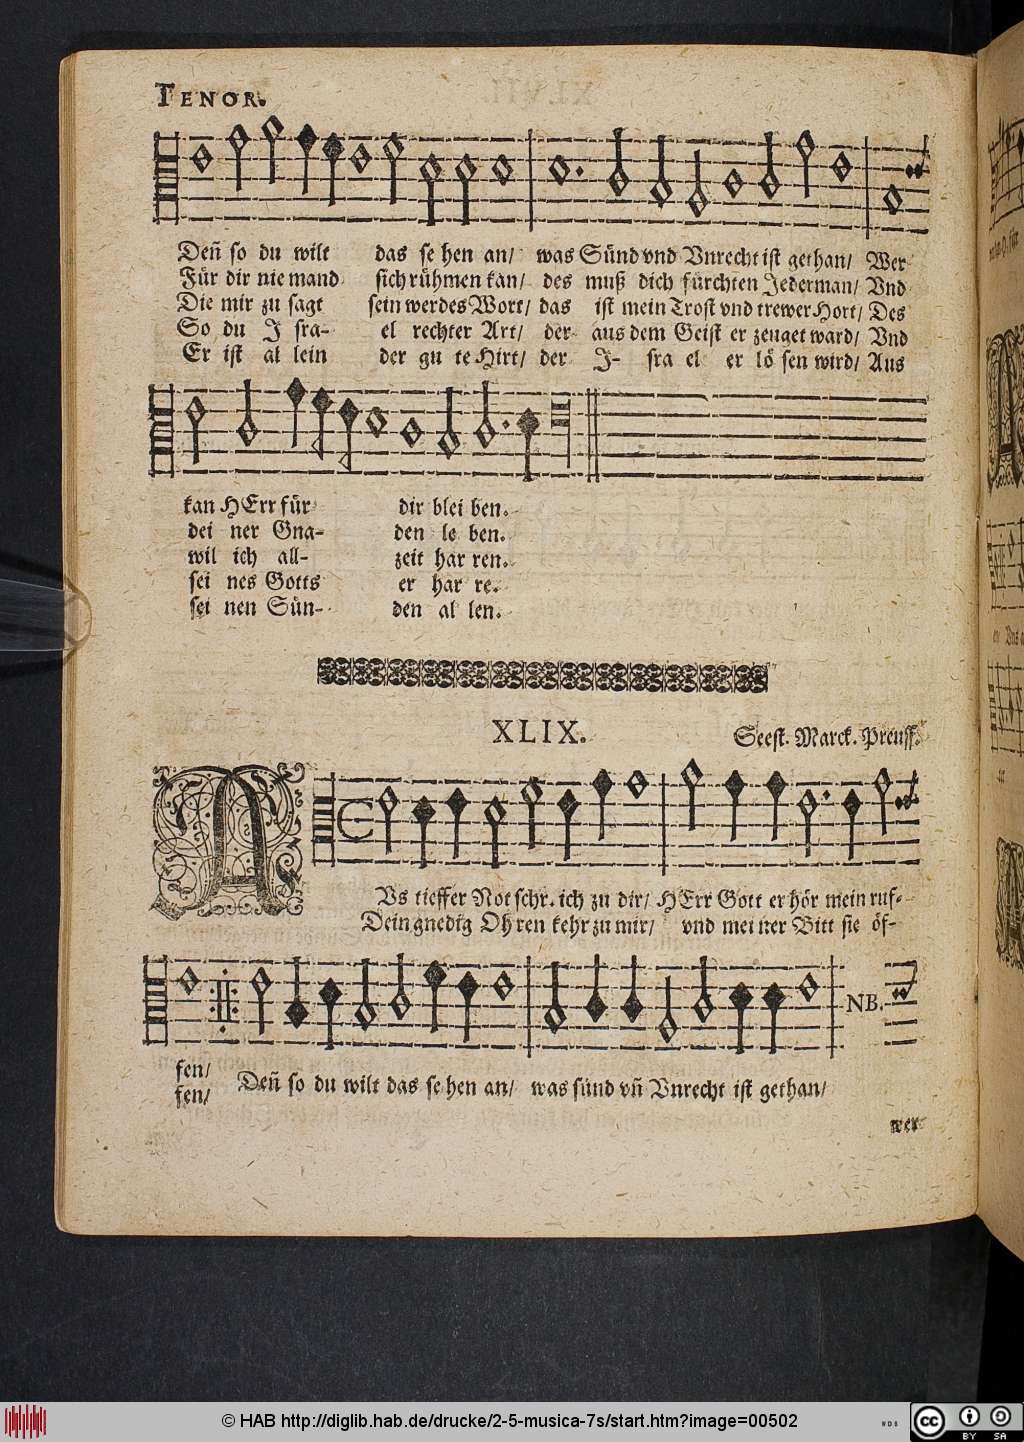 TENOR.
Deñ so du wilt das se hen an/ was Sünd vnd Vnrecht ist gethan/ Wer
Für dir nie mand sich rühmen kan/ des muß dich fürchten Jederman/ Vnd
Die mir zu sagt sein werdes Wort/ das ist mein Trost vnd trewer Hort/ Des
So du J sra- el rechter Art/ der aus dem Geist er zeuget ward/ Vnd
Er ist al lein der gu te Hirt/ der J- sra el er lö sen wird/ Aus
kan HErr für dir blei ben.
dei ner Gna- den le ben.
wil ich all- zeit har ren.
sei nes Gotts er har re.
sei nen Sün- den al len.
XLIX.
Seest. Marck. Preuss.
A
Vs tieffer Not schr. ich zu dir/ HErr Gott er hör mein ruf-
Dein gnedig Oh ren kehr zu mir/ vnd mei ner Bitt sie öf-
NB.
fen/
fen/ Deñ so du wilt das se hen an/ was sünd vñ Vnrecht ist gethan/
wer
© HAB http://diglib.hab.de/drucke/2-5-musica-7s/start.htm?image=00502
WDB
cc BY SA